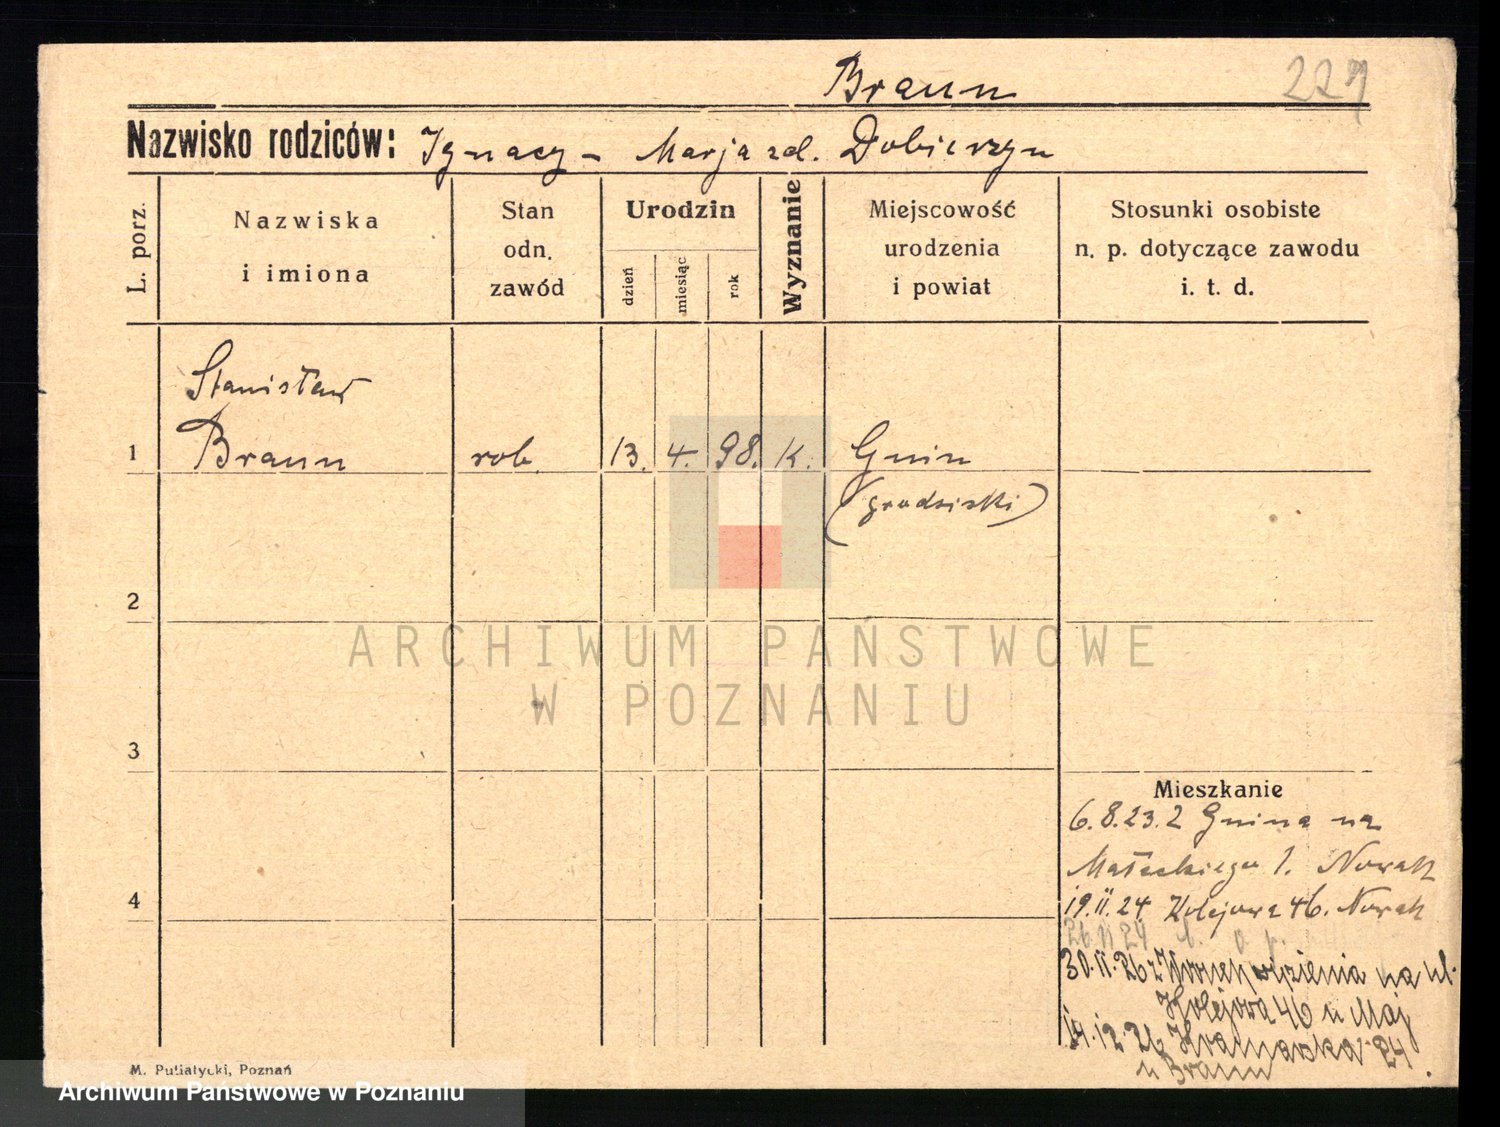 Braun
Nazwisko rodziców: Ignacy - Marja zd. Dobierzyn
L. porz.
Nazwiska
i imiona
Stan
odn.
zawód
Urodzin
dzień
miesiąc
rok
Wyznanie
Miejscowość
urodzenia
i powiat
Stosunki osobiste
n. p. dotyczące zawodu
i. t. d.
Stanisław
1 Braun rob. 13. 4. 98. K. Gnin
(grodziski)
2
ARCHIWUM PAŃSTWOWE
W POZNANIU
3
Mieszkanie
6.8.23. z Gnina na
Małeckiego 1. Nowak
4
19.II.24 Kolejowa 46. Nowak
26 24
30.11.26 z więzienia na ul.
Kolejowa 46 u Maj
14.12.26 24
u Braun
M. Putiatycki, Poznań
Archiwum Państwowe w Poznaniu